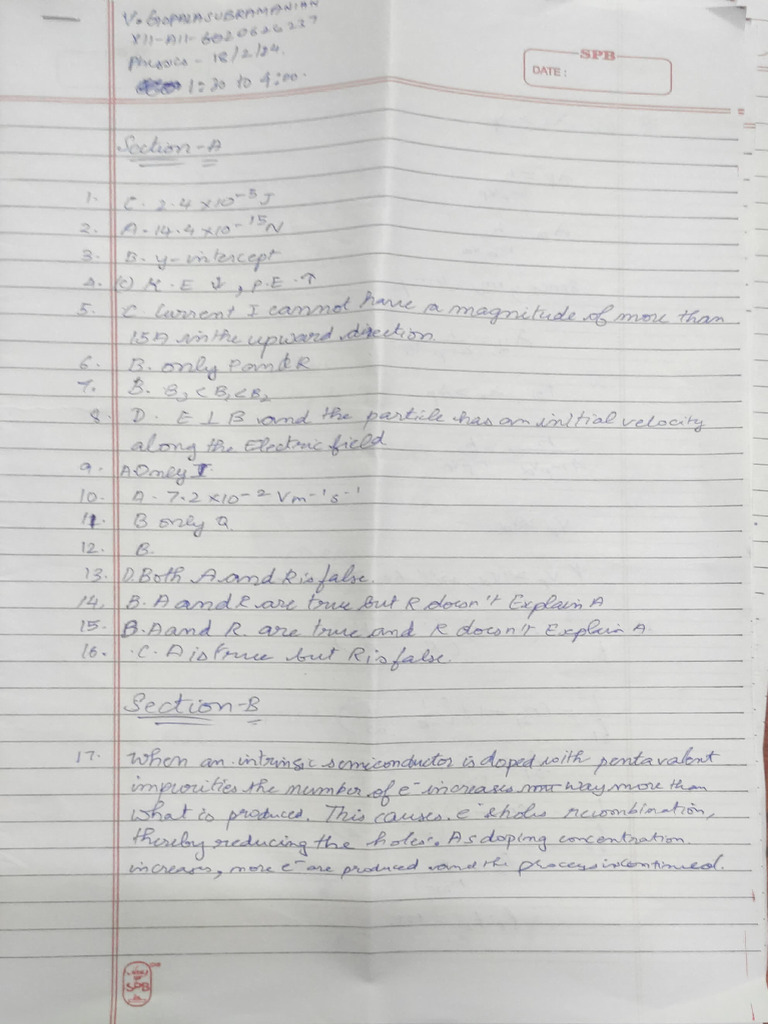 V. GOPALASUBRAMANIAN
XII-A11-6020626237
Physics - 18/2/24.
1:30 to 4:00.
SPB
DATE :
Section-A
1. C. 2.4 x10⁻⁵ J
2. A. 14.4 x10⁻¹⁵N
3. B. y-intercept
4. (c) K.E ↓, P.E.↑
5. C Current I cannot have a magnitude of more than
15A in the upward direction.
6. B. only P and R
7. B. B₃ < B₁ < B₂
8. D. E ⊥ B and the particle has an initial velocity
along the Electric field
9. A Only I
10. A. 7.2 x10⁻² Vm⁻¹s⁻¹
11. B only Q
12. B.
13. D. Both A and R is false.
14. B. A and R are true but R doesn't Explain A
15. B. A and R. are true and R doesn't Explain A
16. C. A is true but R is false.
Section-B
17. When an intrinsic semiconductor is doped with pentavalent
impurities the number of e⁻ increases way more than
what is produced. This causes e⁻ & holes recombination,
thereby reducing the holes. As doping concentration
increases, more e⁻ are produced and the process is continued.
SPB